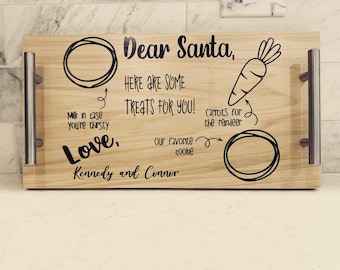 Dear Santa,
HERE ARE SOME
TREATS FOR YOU!
Milk in case
you're thirsty
Carrots for
the reindeer
Love,
Our favorite
cookie
Kennedy and Connor